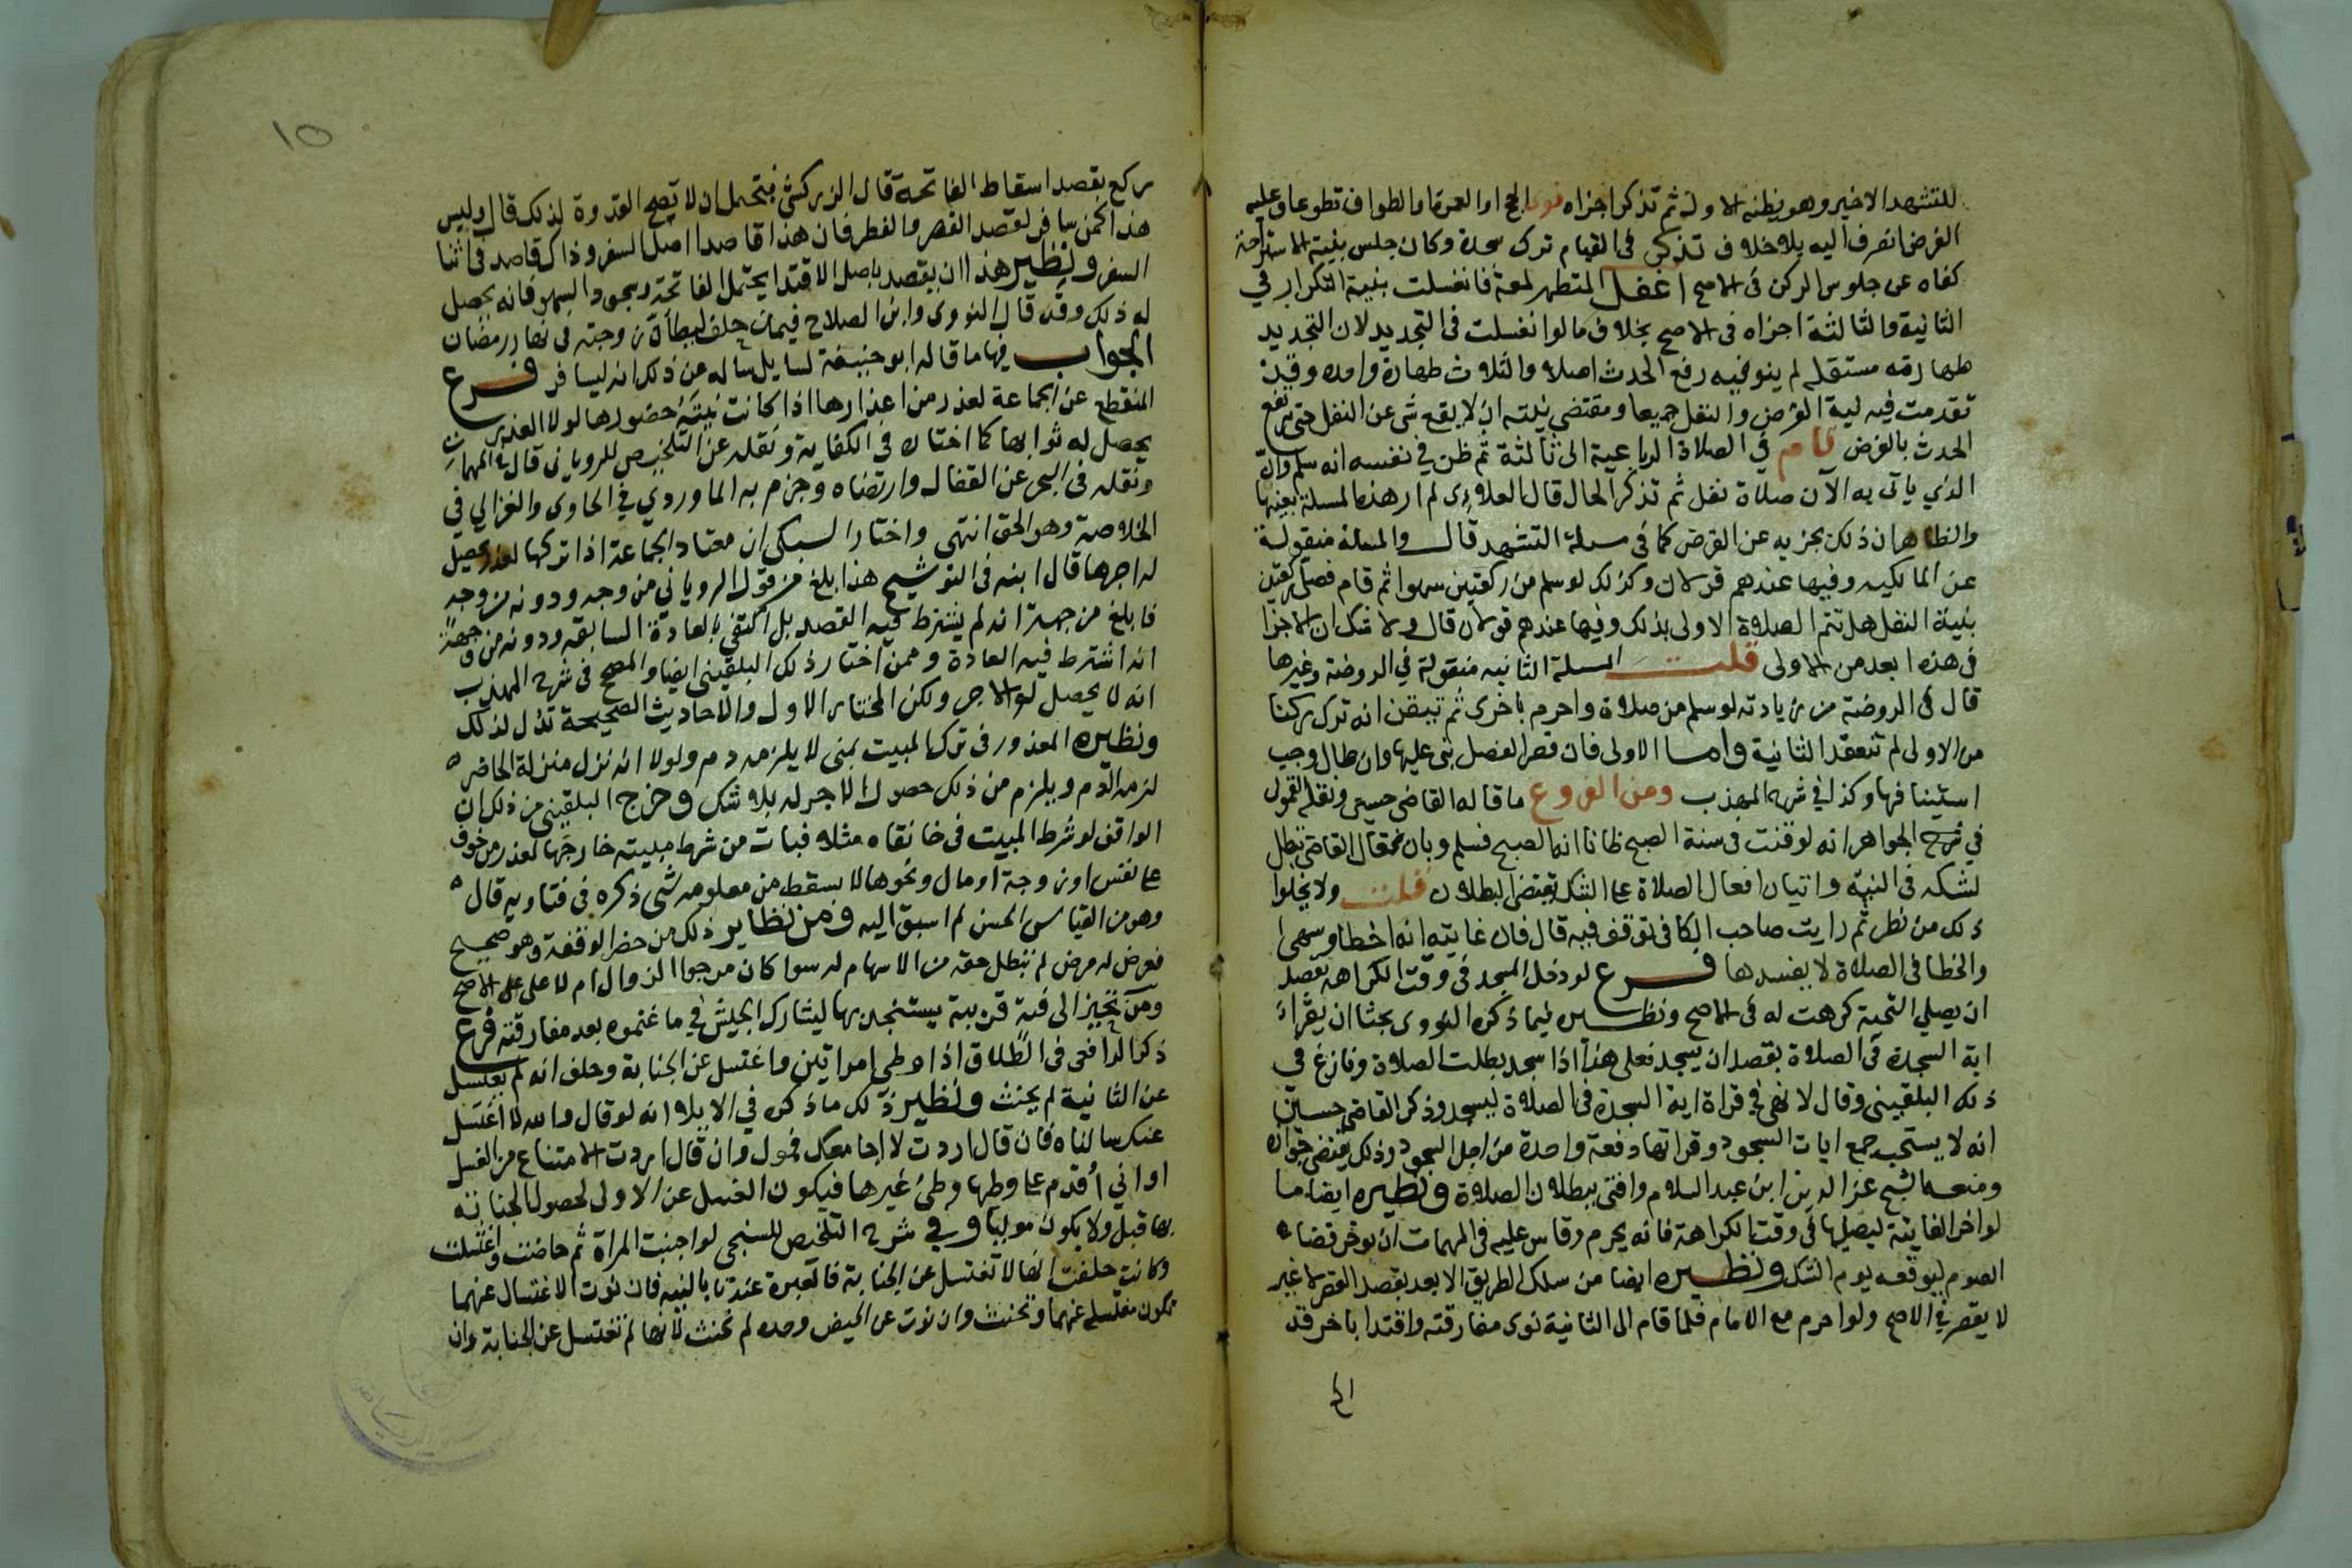 للتشهد الاخير وهو يظنه الاول ثم تذكر اجزاه نوى الحج او العمرة او الطواف تطوعا وعليه
الفرض انصرف اليه بلا خلاف تذكر في القيام ترك سجدة وكان جلس بنية الاستراحة
كفاه عن جلوس الركن في الاصح اغفل المتطهر لمعة فانغسلت بنية التكرار في
الثانية والثالثة اجزاه في الاصح بخلاف ما لو انغسلت في التجديد لان التجديد
طهارة مستقلة لم ينو فيه رفع الحدث اصلا والثلاث طهارة واحدة وقد
تقدمت فيه نية الفرض والنفل جميعا ومقتضى نيته ان لا يقع شي عن النفل حتى يرتفع
الحدث بالفرض قام في الصلاة الرباعية الى ثالثة ثم ظن في نفسه انه سلم وان
الذي ياتي به الآن صلاة نفل ثم تذكر الحال قال العلاءى لم ار هذه المسلة بعينها
والظاهر ان ذلك يجزيه عن الفرض كما في مسلة التشهد قال والمسلة منقولة
عن المالكيه وفيها عندهم قولان وكذلك لو سلم من ركعتين سهوا ثم قام فصلى ركعتين
بنية النفل هل تتم الصلاة الاولى بذلك وفيها عندهم قولان قال ولا شك ان الاجزا
في هذه ابعد من الاولى قلت المسلة الثانيه منقولة في الروضة وغيرها
قال في الروضة من زيادته لو سلم من صلاة واحرم باخرى ثم تيقن انه ترك ركنا
من الاولى لم تنعقد الثانية واما الاولى فان قصر الفصل بنى عليها وان طال وجب
استينافها وكذا في شرح المهذب ومن الفروع ما قاله القاضي حسين ونقله القمولى
في شرح الجواهر انه لو قنت في سنة الصبح ظانا انها الصبح فسلم وبان قال القاضي تبطل
لشكه في النية واتيان افعال الصلاة على الشك يقتضي البطلان قلت ولا يخلوا
ذلك من نظر ثم رايت صاحب الكافي توقف فيه قال فان غايته انه اخطا وسهى
والخطا في الصلاة لا يفسدها فرع لو دخل المسجد في وقت الكراهه بقصد
ان يصلي التحية كرهت له في الاصح ونظيره فيما ذكره النووى بحثا ان يقراء
اية السجدة في الصلاة بقصد ان يسجد فعلى هذا اذا سجد بطلت الصلاة ونازع في
ذلك البلقيني وقال لا نهي في قراة اية السجدة في الصلاة ليسجد وذكر القاضي حسين
انه لا يستحب جمع ايات السجود وقراتها دفعة واحدة من اجل السجود وذلك يقتضي جوازه
ومنعه الشيخ عز الدين ابن عبد السلام وافتى ببطلان الصلاة ونظيره ايضا ما
لو اخر الفايتة ليصليها في وقت الكراهة فانه يحرم وقاس عليه في المهمات ان يوخر قضا
الصوم ليوقعه يوم الشك ونظيره ايضا من سلك الطريق الابعد بقصد القصر لا غير
لا يقصر في الاصح ولو احرم مع الامام فلما قام الى الثانية نوى مفارقته واقتدا باخر قد
١٥
ركع بقصد اسقاط الفاتحة قال الزركشي فيحتمل ان لا تصح القدوة لذلك قال وليس
هذا كمن سافر لقصد القصر والفطر فان هذا قاصدا اصل السفر وذاك قاصد في اثنا
السفر ونظير هذا ان يقصد باصل الاقتدا يحتمل الفاتحة وسجود السهو فانه يحصل
له ذلك وقد قال النووى وابن الصلاح فيمن حلف ليطأن زوجته في نهار رمضان
الجواب فيها ما قاله ابو حنيفة لسايل ساله عن ذلك انه ليسافر فرع
المنقطع عن الجماعة لعذر من اعذارها اذا كانت نيته حضورها لولا العذر
يحصل له ثوابها كما اختاره في الكفاية ونقله عن التلخيص للرويانى قال في المهمات
ونقله في البحر عن القفال وارتضاه وجزم به الماوردي في الحاوى والغزالي في
الخلاصة وهو الحق انتهى واختار السبكي ان معتاد الجماعة اذا تركها لعذر يحصل
له اجرها قال ابنه في التوشيح هذا ابلغ من قول الروياني من وجه ودونه من وجه
فابلغ من جهة انه لم يشترط فيه القصد بل اكتفى بالعادة السابقه ودونه من جهة
انه اشترط فيه العادة وممن اختار ذلك البلقيني ايضا والمصحح في شرح المهذب
انه لا يحصل له الاجر ولكن المختار الاول والاحاديث الصحيحة تدل لذلك
ونظيره المعذور في ترك المبيت بمنى لا يلزمه دم ولولا انه نزل منزلة الحاضر
لزمه الدم ويلزم من ذلك حصول الاجر له بلا شك وخرج البلقيني من ذلك ان
الواقف لو شرط المبيت في خانقاه مثلا فبات من شرط مبيته خارجها لعذر من خوف
على نفس او زوجة او مال ونحوها لا يسقط من معلومه شي ذكره في فتاويه قال
وهو من القياس الحسن لم اسبق اليه ومن نظاير ذلك من حضر الوقفة وهو صحيح
فعرض له مرض لم تبطل حقه من الاسهام له سوا كان مرجوا الزوال ام لا على الاصح
ومن تحيز الى فئة قريبة يستنجد بها ليشارك الجيش في ما غنموه بعد مفارقته فرع
ذكر الرافعى في الطلاق اذا وطي امراتين واغتسل عن الجنابة وحلف انه لم يغتسل
عن الثانية لم يحنث ونظير ذلك ما ذكره في الايلا انه لو قال والله لا اغتسل
عنك سالناه فان قال اردت لا اجامعك فمول وان قال اردت الامتناع من الغسل
او اني أقدم على وطيها وطئ غيرها فيكون الغسل عن الاولى لحصول الجنابة
بها قبل ولا يكون موليا وفي شرح التلخيص للسنجى لو اجنبت المراة ثم حاضت واغتسلت
وكانت حلفت انها لا تغتسل عن الجنابة فالعبرة عندنا بالنيه فان نوت الاغتسال عنهما
تكون مغتسلة عنهما وتحنث وان نوت عن الحيض وحده لم تحنث لانها لم تغتسل عن الجنابة وان